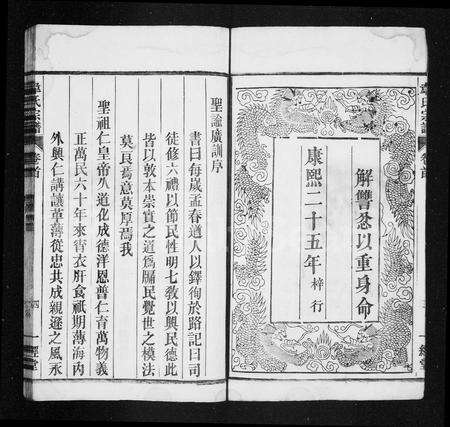 解讐忿以重身命
康熙二十五年 梓行
章氏宗譜 卷首
聖諭廣訓序
書曰每歲孟春遒人以鐸徇於路記曰司
徒修六禮以節民性明七敎以興民德此
皆以敦本崇實之道爲牖民覺世之模法
莫良焉意莫厚焉我
聖祖仁皇帝久道化成德洋恩普仁育萬物義
正萬民六十年來宵衣旰食祇期薄海內
外興仁講讓革薄從忠共成親遜之風永
章氏宗譜 卷首 四 一經堂